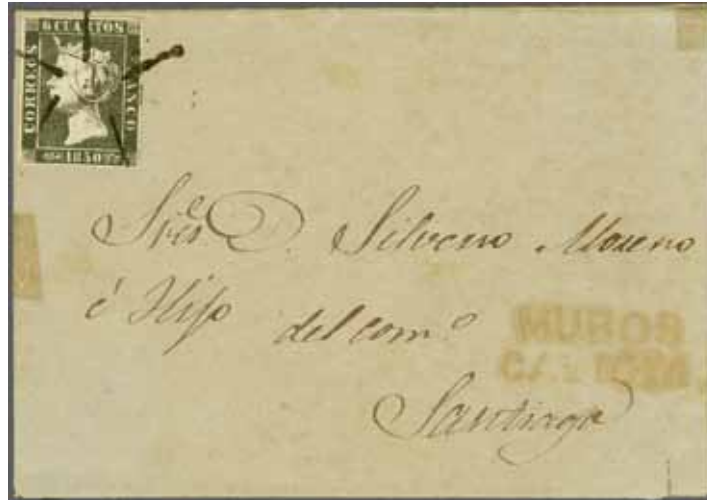 6 CUARTOS
CORREOS
FRANCO
1850
Sres D. Silverio Moreno
é Hijo del com.o
MUROS
Santiago